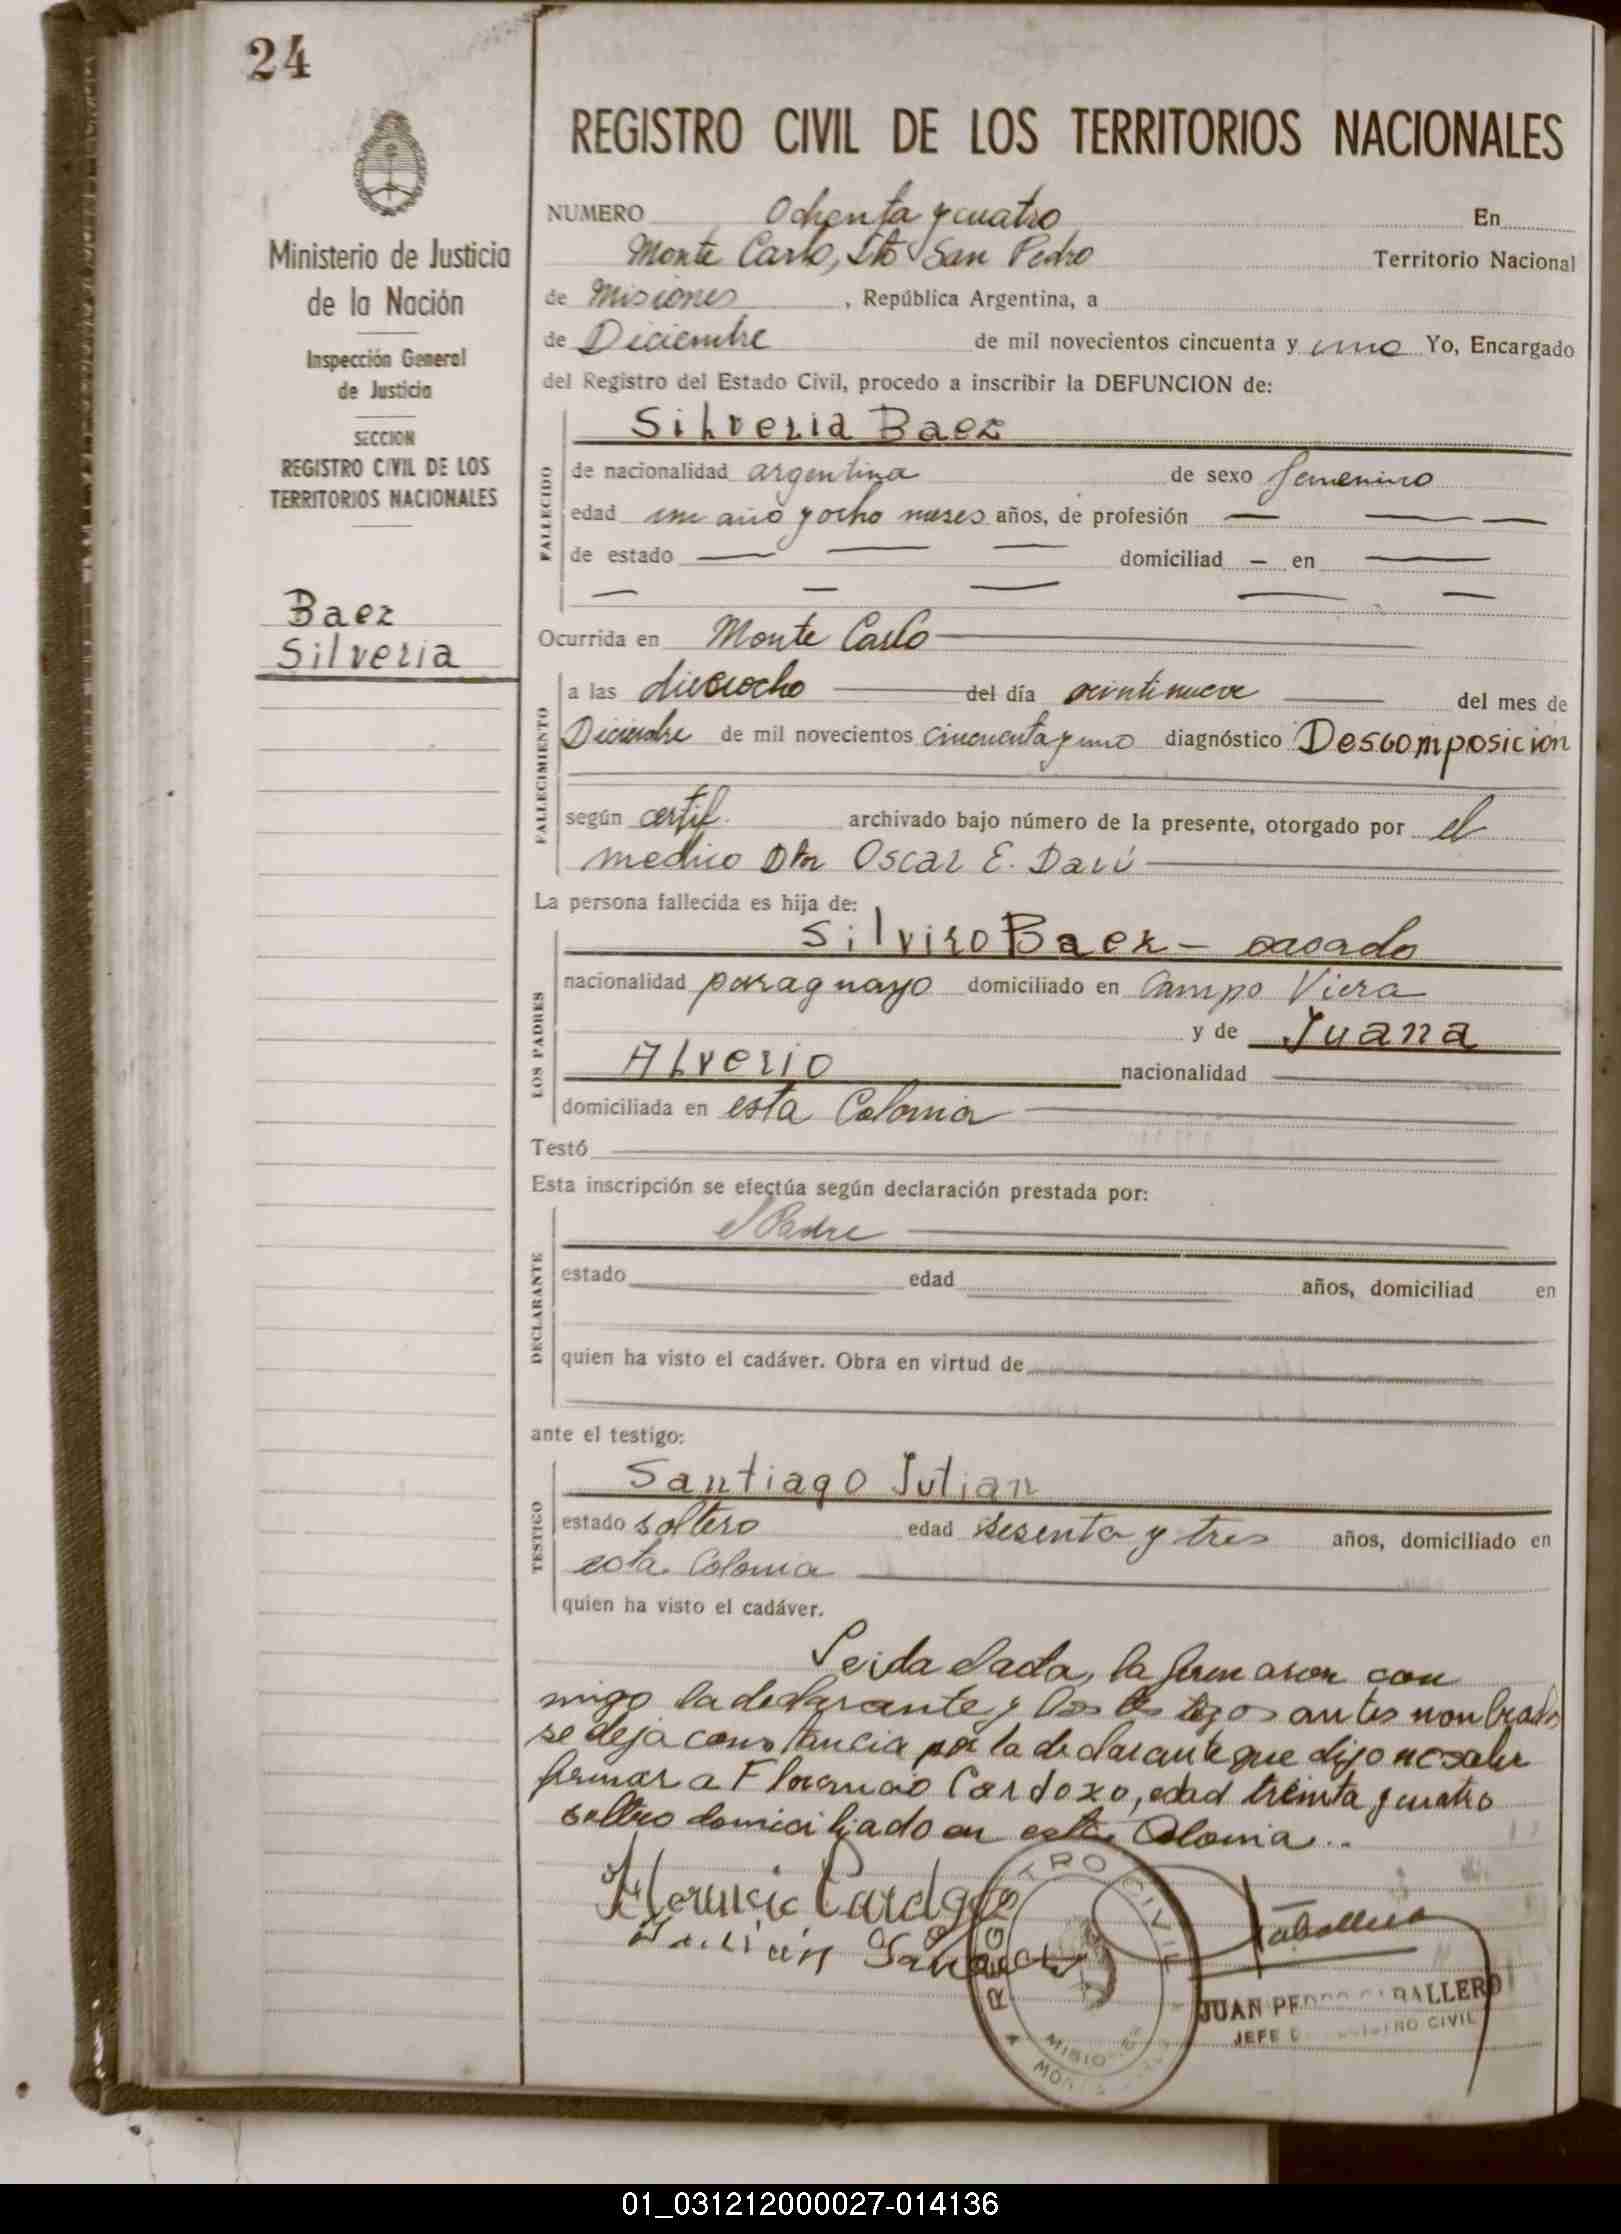 24
Ministerio de Justicia
de la Nación
Inspección General
de Justicia
SECCION
REGISTRO CIVIL DE LOS
TERRITORIOS NACIONALES
Baez
Silveria
REGISTRO CIVIL DE LOS TERRITORIOS NACIONALES
NUMERO Ochenta y cuatro En
Monte Carlo, Dto San Pedro Territorio Nacional
de Misiones, República Argentina, a
de Diciembre de mil novecientos cincuenta y uno Yo, Encargado
del Registro del Estado Civil, procedo a inscribir la DEFUNCION de:
Silveria Baez
FALLECIDO
de nacionalidad argentina de sexo femenino
edad un año y ocho meses años, de profesión — — —
de estado — — — domiciliad - en —
— — — — —
Ocurrida en Monte Carlo
FALLECIMIENTO
a las dieciocho del día veintinueve del mes de
Diciembre de mil novecientos cincuenta y uno diagnóstico Descomposición
según certif. archivado bajo número de la presente, otorgado por el
medico Dtor Oscar E. Darú
La persona fallecida es hija de:
LOS PADRES
Silviro Baez - casado
nacionalidad paraguayo domiciliado en Campo Viera
y de Juana
Alverio nacionalidad
domiciliada en esta Colonia
Testó
Esta inscripción se efectúa según declaración prestada por:
DECLARANTE
el Padre
estado edad años, domiciliad en
quien ha visto el cadáver. Obra en virtud de
ante el testigo:
TESTIGO
Santiago Julian
estado soltero edad sesenta y tres años, domiciliado en
esta Colonia
quien ha visto el cadáver.
Leida el acta, la firmaron con
migo la declarante y los testigos antes nombrados
se deja constancia por la declarante que dijo no saber
firmar a Florencio Cardozo, edad treinta y cuatro
soltero domiciliado en esta Colonia..
Florencio Cardozo
Julián
Caballero
REGISTRO CIVIL
MISIONES
JUAN PEDRO CABALLERO
JEFE REGISTRO CIVIL
01_031212000027-014136